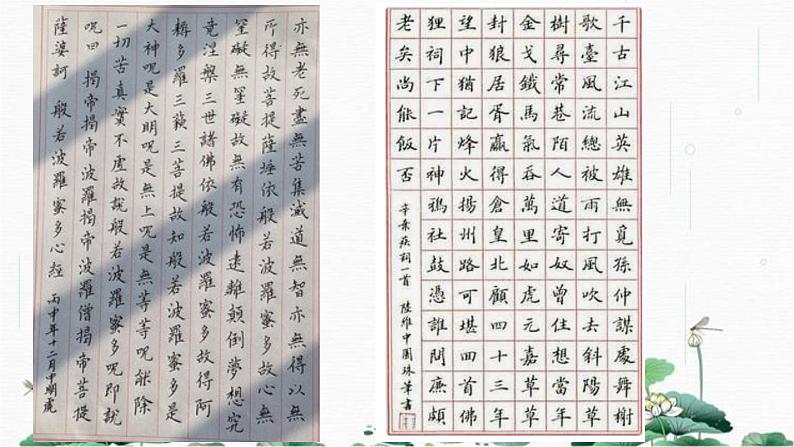 亦無老死盡無苦集滅道無智亦無得以無
所得故菩提薩埵依般若波羅蜜多故心無
罣礙無罣礙故無有恐怖遠離顛倒夢想究
竟涅槃三世諸佛依般若波羅蜜多故得阿
耨多羅三藐三菩提故知般若波羅蜜多是
大神呪是大明呪是無上呪是無等等呪能除
一切苦真實不虛故說般若波羅蜜多呪即說
呪曰 揭帝揭帝波羅揭帝波羅僧揭帝菩提
薩婆訶 般若波羅蜜多心經 丙申年十二月中順
千古江山英雄無覓孫仲謀處舞榭
歌臺風流總被雨打風吹去斜陽草
樹尋常巷陌人道寄奴曾住想當年
金戈鐵馬氣吞萬里如虎元嘉草草
封狼居胥贏得倉皇北顧四十三年
望中猶記烽火揚州路可堪回首佛
狸祠下一片神鴉社鼓憑誰問廉頗
老矣尚能飯否
辛棄疾詞一首 陸維中圓珠筆書